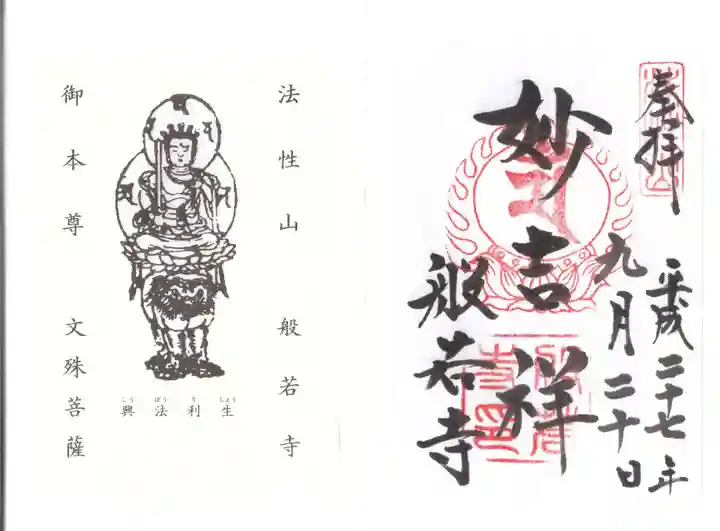 奉拝
平成二十七年
九月二十日
妙吉祥
般若寺
法性山 般若寺
興法利生
こう ぼう り しょう
御本尊 文殊菩薩